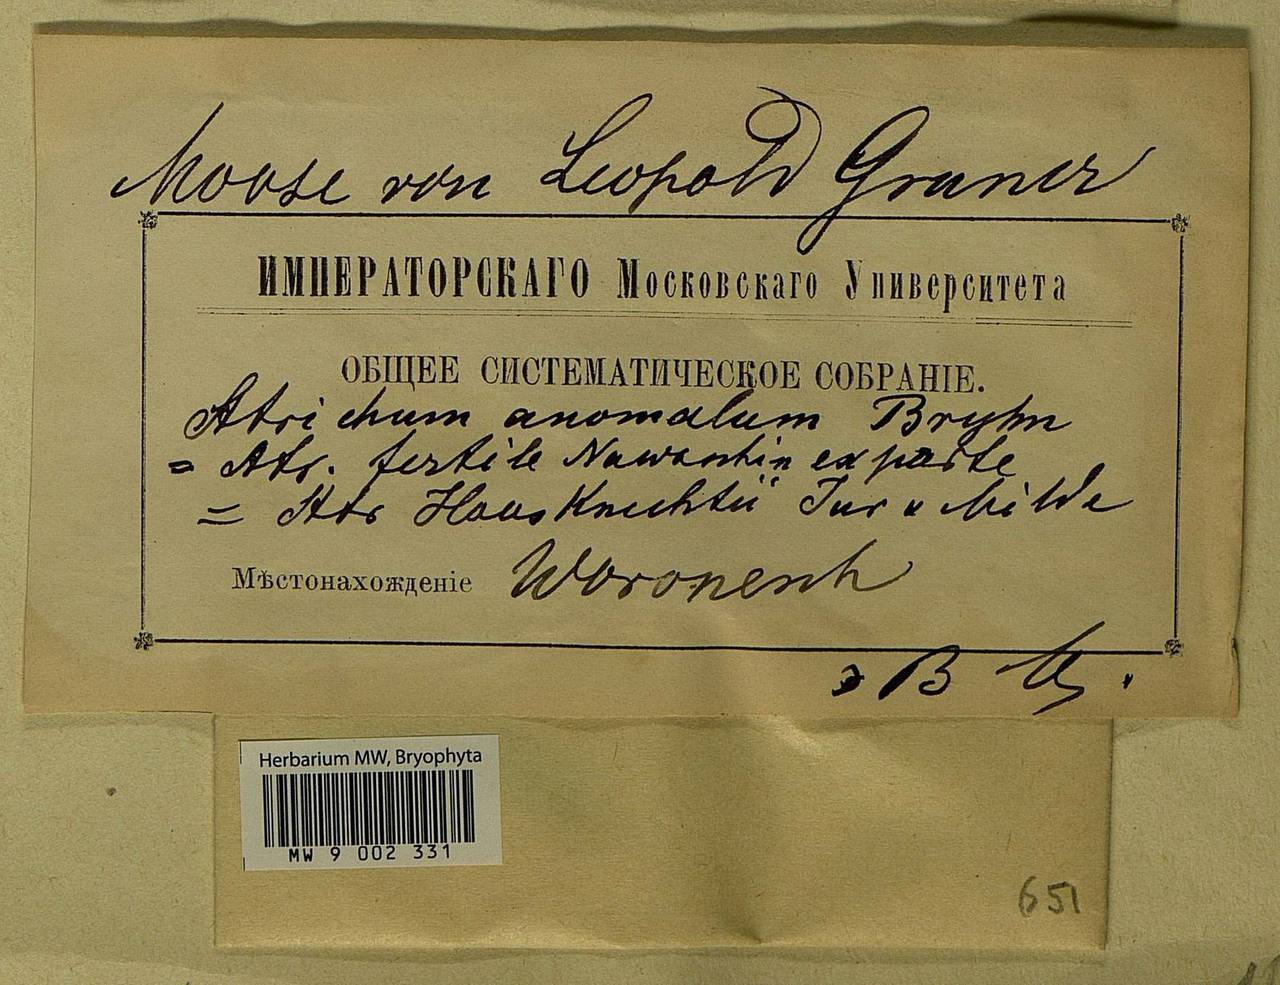 Moose von Leopold Graner
ИМПЕРАТОРСКАГО Московскаго Университета
ОБЩЕЕ СИСТЕМАТИЧЕСКОЕ СОБРАНІЕ.
Atrichum anomalum Bryhn
= Atr. fertile Nawaschin ex parte
= Atr Hausknechtii Jur u Milde
Мѣстонахожденіе Woronesch
B
Herbarium MW, Bryophyta
MW 9 002 331
651